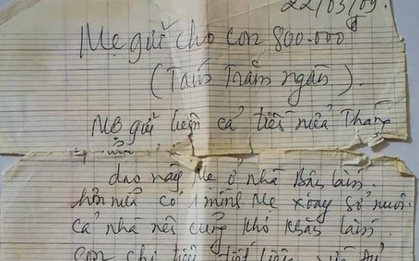 22/03/09.
Mẹ gửi cho con 800.000đ
(Tám Trăm ngàn).
Mẹ gửi luôn cả tiền nửa Tháng
dạo này Mẹ ở nhà Bấn lắm.
hơn nữa có 1 mình Mẹ xoay sở nuôi
cả nhà nên cũng khó khăn lắm.
con chi tiêu tiết kiệm